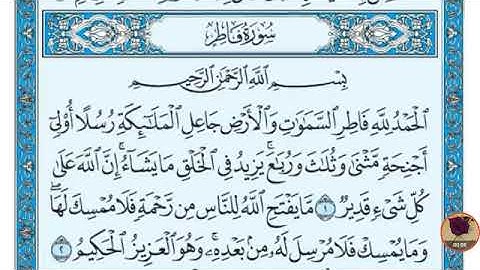 سُورَةُ فَاطِرٍ
بِسْمِ اللَّهِ الرَّحْمَٰنِ الرَّحِيمِ
الْحَمْدُ لِلَّهِ فَاطِرِ السَّمَاوَاتِ وَالْأَرْضِ جَاعِلِ الْمَلَائِكَةِ رُسُلًا أُولِي
أَجْنِحَةٍ مَّثْنَىٰ وَثُلَاثَ وَرُبَاعَ ۚ يَزِيدُ فِي الْخَلْقِ مَا يَشَاءُ ۚ إِنَّ اللَّهَ عَلَىٰ
كُلِّ شَيْءٍ قَدِيرٌ ١ مَّا يَفْتَحِ اللَّهُ لِلنَّاسِ مِن رَّحْمَةٍ فَلَا مُمْسِكَ لَهَا ۖ
وَمَا يُمْسِكْ فَلَا مُرْسِلَ لَهُ مِن بَعْدِهِ ۚ وَهُوَ الْعَزِيزُ الْحَكِيمُ ٢